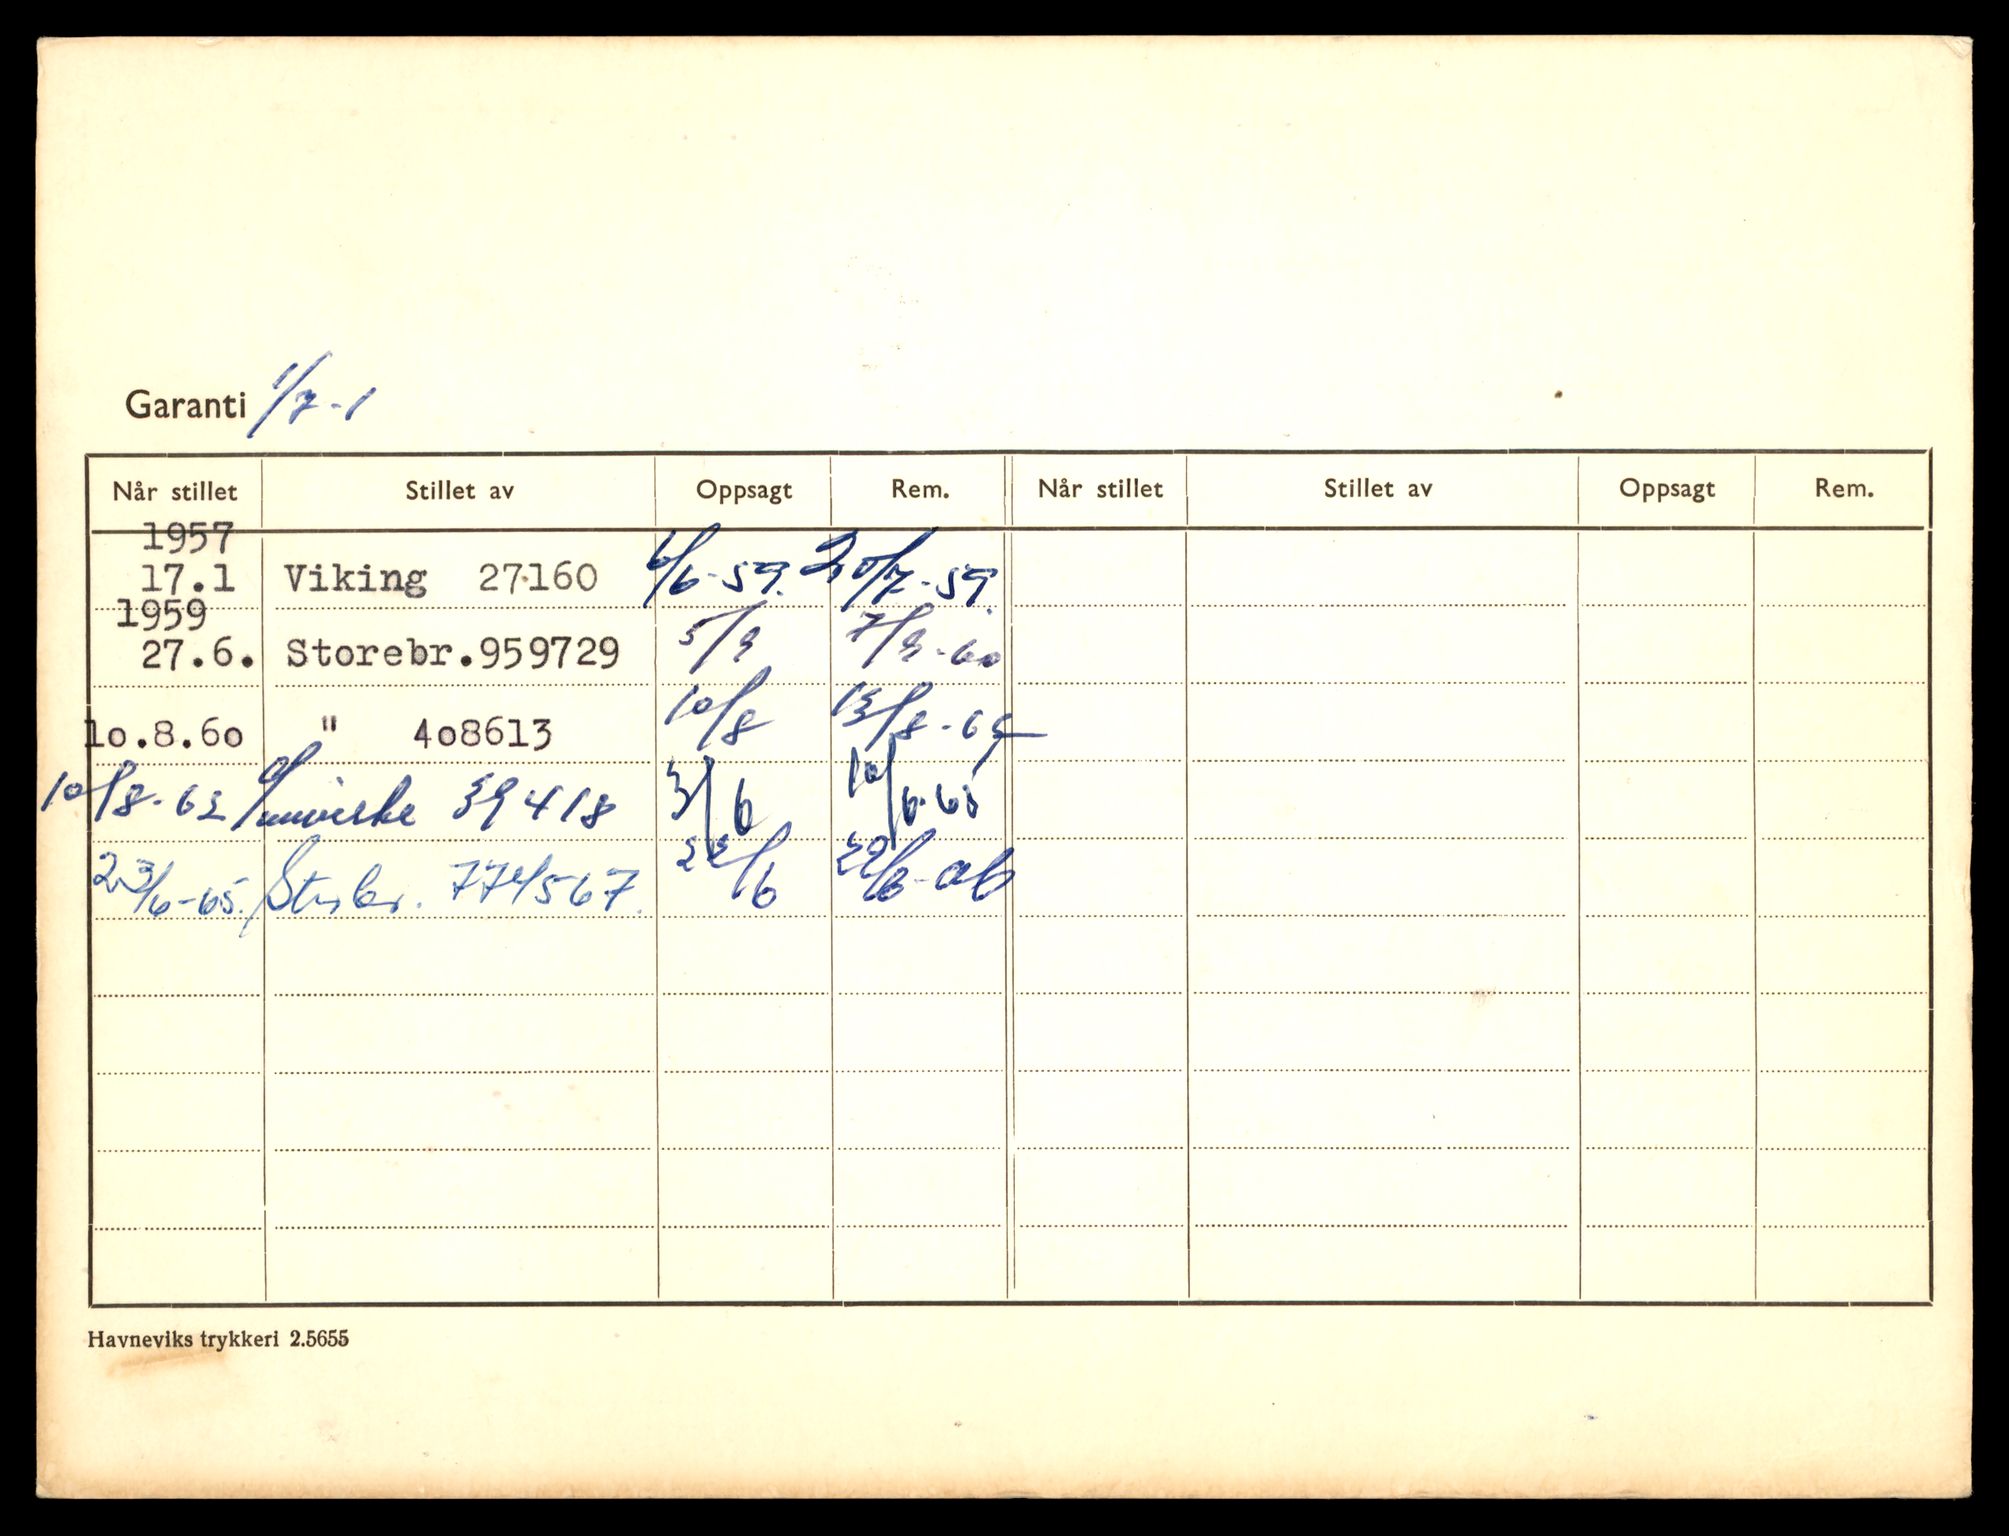 Garanti 1/7-1
Når stillet Stillet av Oppsagt Rem. Når stillet Stillet av Oppsagt Rem.
1957
17.1 Viking 27160 6/6-59. 20/7-59.
1959
27.6. Storebr.959729 5/9 7/9-60
10.8.60 " 408613 10/8 13/8-63
10/8-63 39418 3/6 10/6-65
23/6-65. Storebr. 774567. 22/6
Havneviks trykkeri 2.5655